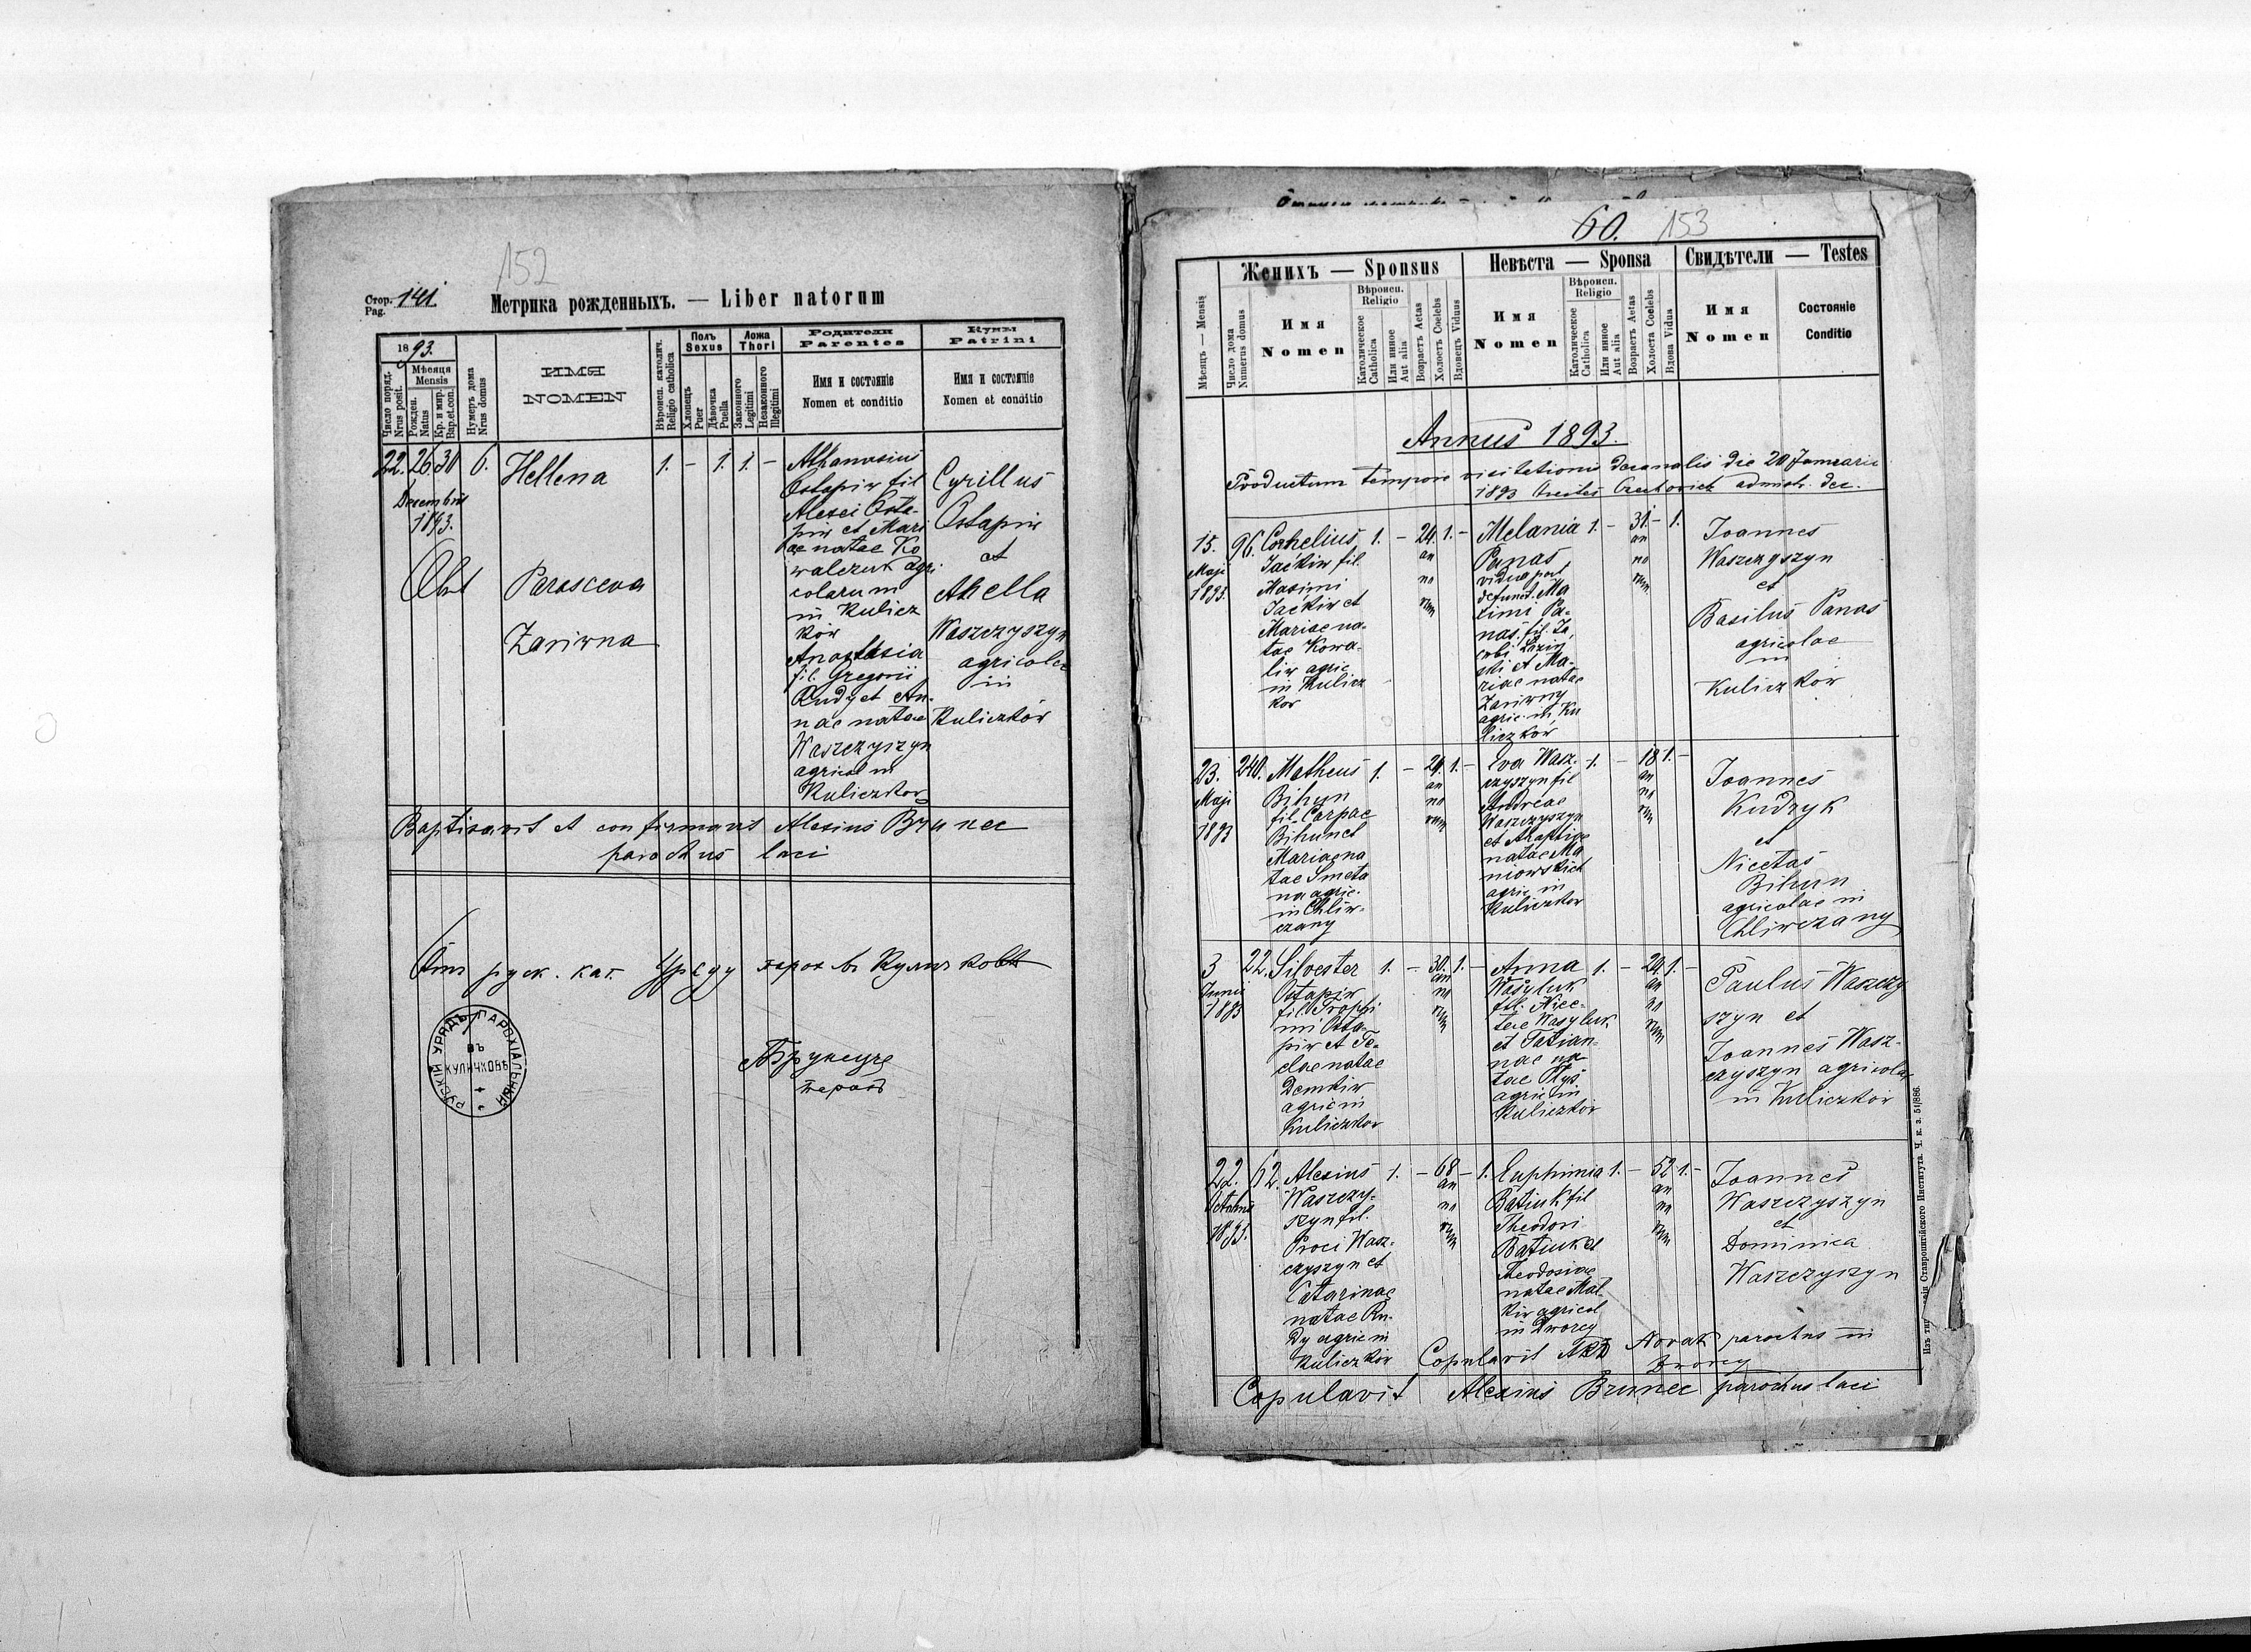 152
Стор. Pag. 141.
Метрика рожденныхъ. — Liber natorum
1893.
Число поряд. Nrus posit.
Мѣсяца Mensis
Рожден. Natus
Кр. и мир. Bap. et con.
Нумеръ дома Nrus domus
ИМЯ
NOMEN
Вѣроисп. католич. Religio catholica
Полъ
Sexus
Хлопецъ Puer
Дѣвочка Puella
Ложа
Thori
Законного Legitimi
Незаконного Illegitimi
Родители
Parentes
Имя и состояніе
Nomen et conditio
Кумы
Patrini
Имя и состояніе
Nomen et conditio
22. 26 30 6. Hellena 1. — 1. 1. —
Decembris
1893.
Obst Parasceva
Zariwna
Athanasius
Ostapiw fil
Alexei Osta-
piw et Mari
ae natae Ko
walczuk agri
colarum
in Kulicz
ków
Anastasia
fil. Gregorii
Rudy et An-
nae natae
Waszczyszyn
agricol in
Kuliczkow
Cyrillus
Ostapiw
et
Ahella
Waszczyszyn
agricolae
in
Kuliczków
Baptisavit et confirmavit Alexius Brunec
parochus loci
От руск. кат. Уряду парох въ Куличковѣ
РУСКІЙ УРЯДЪ ПАРОХІАЛЬНЫЙ
ВЪ
КУЛИЧКОВѢ
АБрунець
парох
60. 153
Мѣсяцъ — Mensis
Число дома Numerus domus
Женихъ — Sponsus
Имя
Nomen
Вѣроисп.
Religio
Католическое Catholica
Или инное Aut alia
Возрастъ Aetas
Холостъ Coelebs
Вдовецъ Viduus
Невѣста — Sponsa
Имя
Nomen
Вѣроисп.
Religio
Католическое Catholica
Или инное Aut alia
Возрастъ Aetas
Холоста Coelebs
Вдова Vidua
Свидѣтели — Testes
Имя
Nomen
Состояніе
Conditio
Annus 1893.
Productum tempore visitationis decanalis die 20 Januarii
1893 admstr. dec.
15.
Maji
1893.
96. Cornelius 1. — 24. 1. —
an
no
rum
Jaćkiw fil.
Maximi
Jaćkiw et
Mariae na-
tae Kowa-
liw agric
in Kulicz
kow
Melania 1. — 31. — 1.
an
no
rum
Panas
vidua post
defunct. Ma
ximi Pa-
nas. fil. Ja
cobi Lazin
ski et Ma-
riae natae
Zariwny
agric. in Ku
liczków
Joannes
Waszczyszyn
et
Basilus Panas
agricolae
in
Kuliczkow
23.
Maji
1893
240. Matheus 1. — 24. 1. —
an
no
rum
Bihun
fil. Carpae
Bihun et
Mariae na
tae Smeta
na agric.
in Chliw-
czany
Eva Wasz- 1. — 18 1. —
an
no
rum
czyszyn fil
Andreae
Waszczyszyn
et Ahaphiae
natae Ma
niowskich
agric in
Kuliczkow
Joannes
Kudryk
et
Nicetas
Bihun
agricolae in
Chliwczany
3
Junii
1893
22. Silvester 1. — 30. 1. —
an
no
rum
Ostapiw
fil Trophi
mi Osta-
piw et Te-
clae natae
Demkiw
agric in
Kuliczkow
Anna 1. — 24 1. —
an
no
rum
Wasyluk
fil. Nice-
tae Wasyluk
et Tatian-
nae na-
tae Ptyś
agric in
Kuliczków
Paulus Waszczy
szyn et
Joannes Wasz-
czyszyn agricolae
in Kuliczkow
22.
Octobris
1893.
62. Alexius 1. — 68 — 1.
an
no
rum
Waszczy-
szyn fil.
Proci Wasz-
czyszyn et
Catarinae
natae Ru-
dy agric in
Kuliczkow
Euphimia 1. — 52 1. —
an
no
rum
Batiuk fil
Theodori
Batiuk et
Theodosiae
natae Mat-
kiw agricol
in Dworcy
Joannes
Waszczyszyn
et
Dominica
Waszczyszyn
Copulavit Novak parochus in
Dworcy
Copulavit Alexius Brunec parochus loci
Ставропигійского Института. Ч. к. з. 51/886.